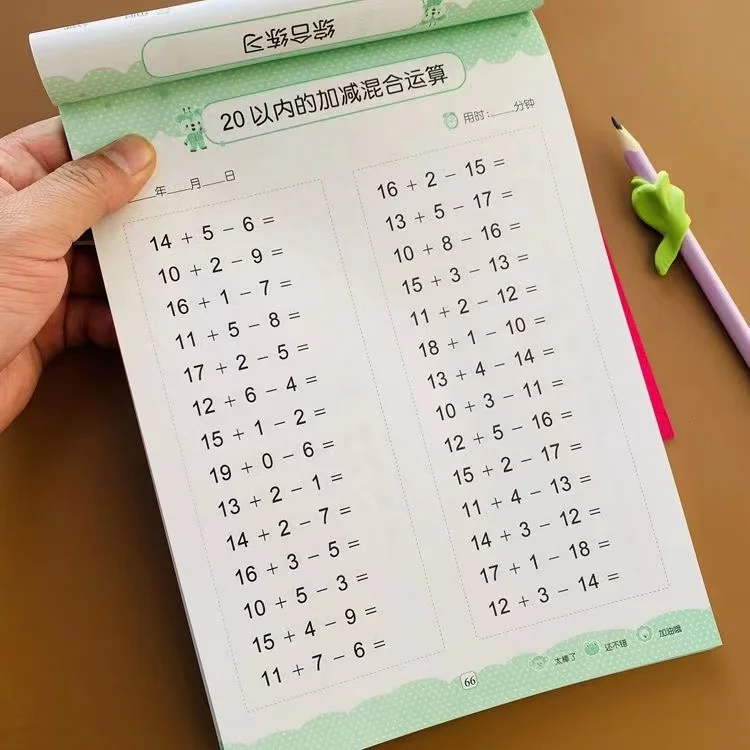 综合练习
20 以内的加减混合运算
用时：____分钟
____年____月____日
14 + 5 − 6 =
10 + 2 − 9 =
16 + 1 − 7 =
11 + 5 − 8 =
17 + 2 − 5 =
12 + 6 − 4 =
15 + 1 − 2 =
19 + 0 − 6 =
13 + 2 − 1 =
14 + 2 − 7 =
16 + 3 − 5 =
10 + 5 − 3 =
15 + 4 − 9 =
11 + 7 − 6 =
16 + 2 − 15 =
13 + 5 − 17 =
10 + 8 − 16 =
15 + 3 − 13 =
11 + 2 − 12 =
18 + 1 − 10 =
13 + 4 − 14 =
10 + 3 − 11 =
12 + 5 − 16 =
15 + 2 − 17 =
11 + 4 − 13 =
14 + 3 − 12 =
17 + 1 − 18 =
12 + 3 − 14 =
太棒了 还不错 加油哦
66